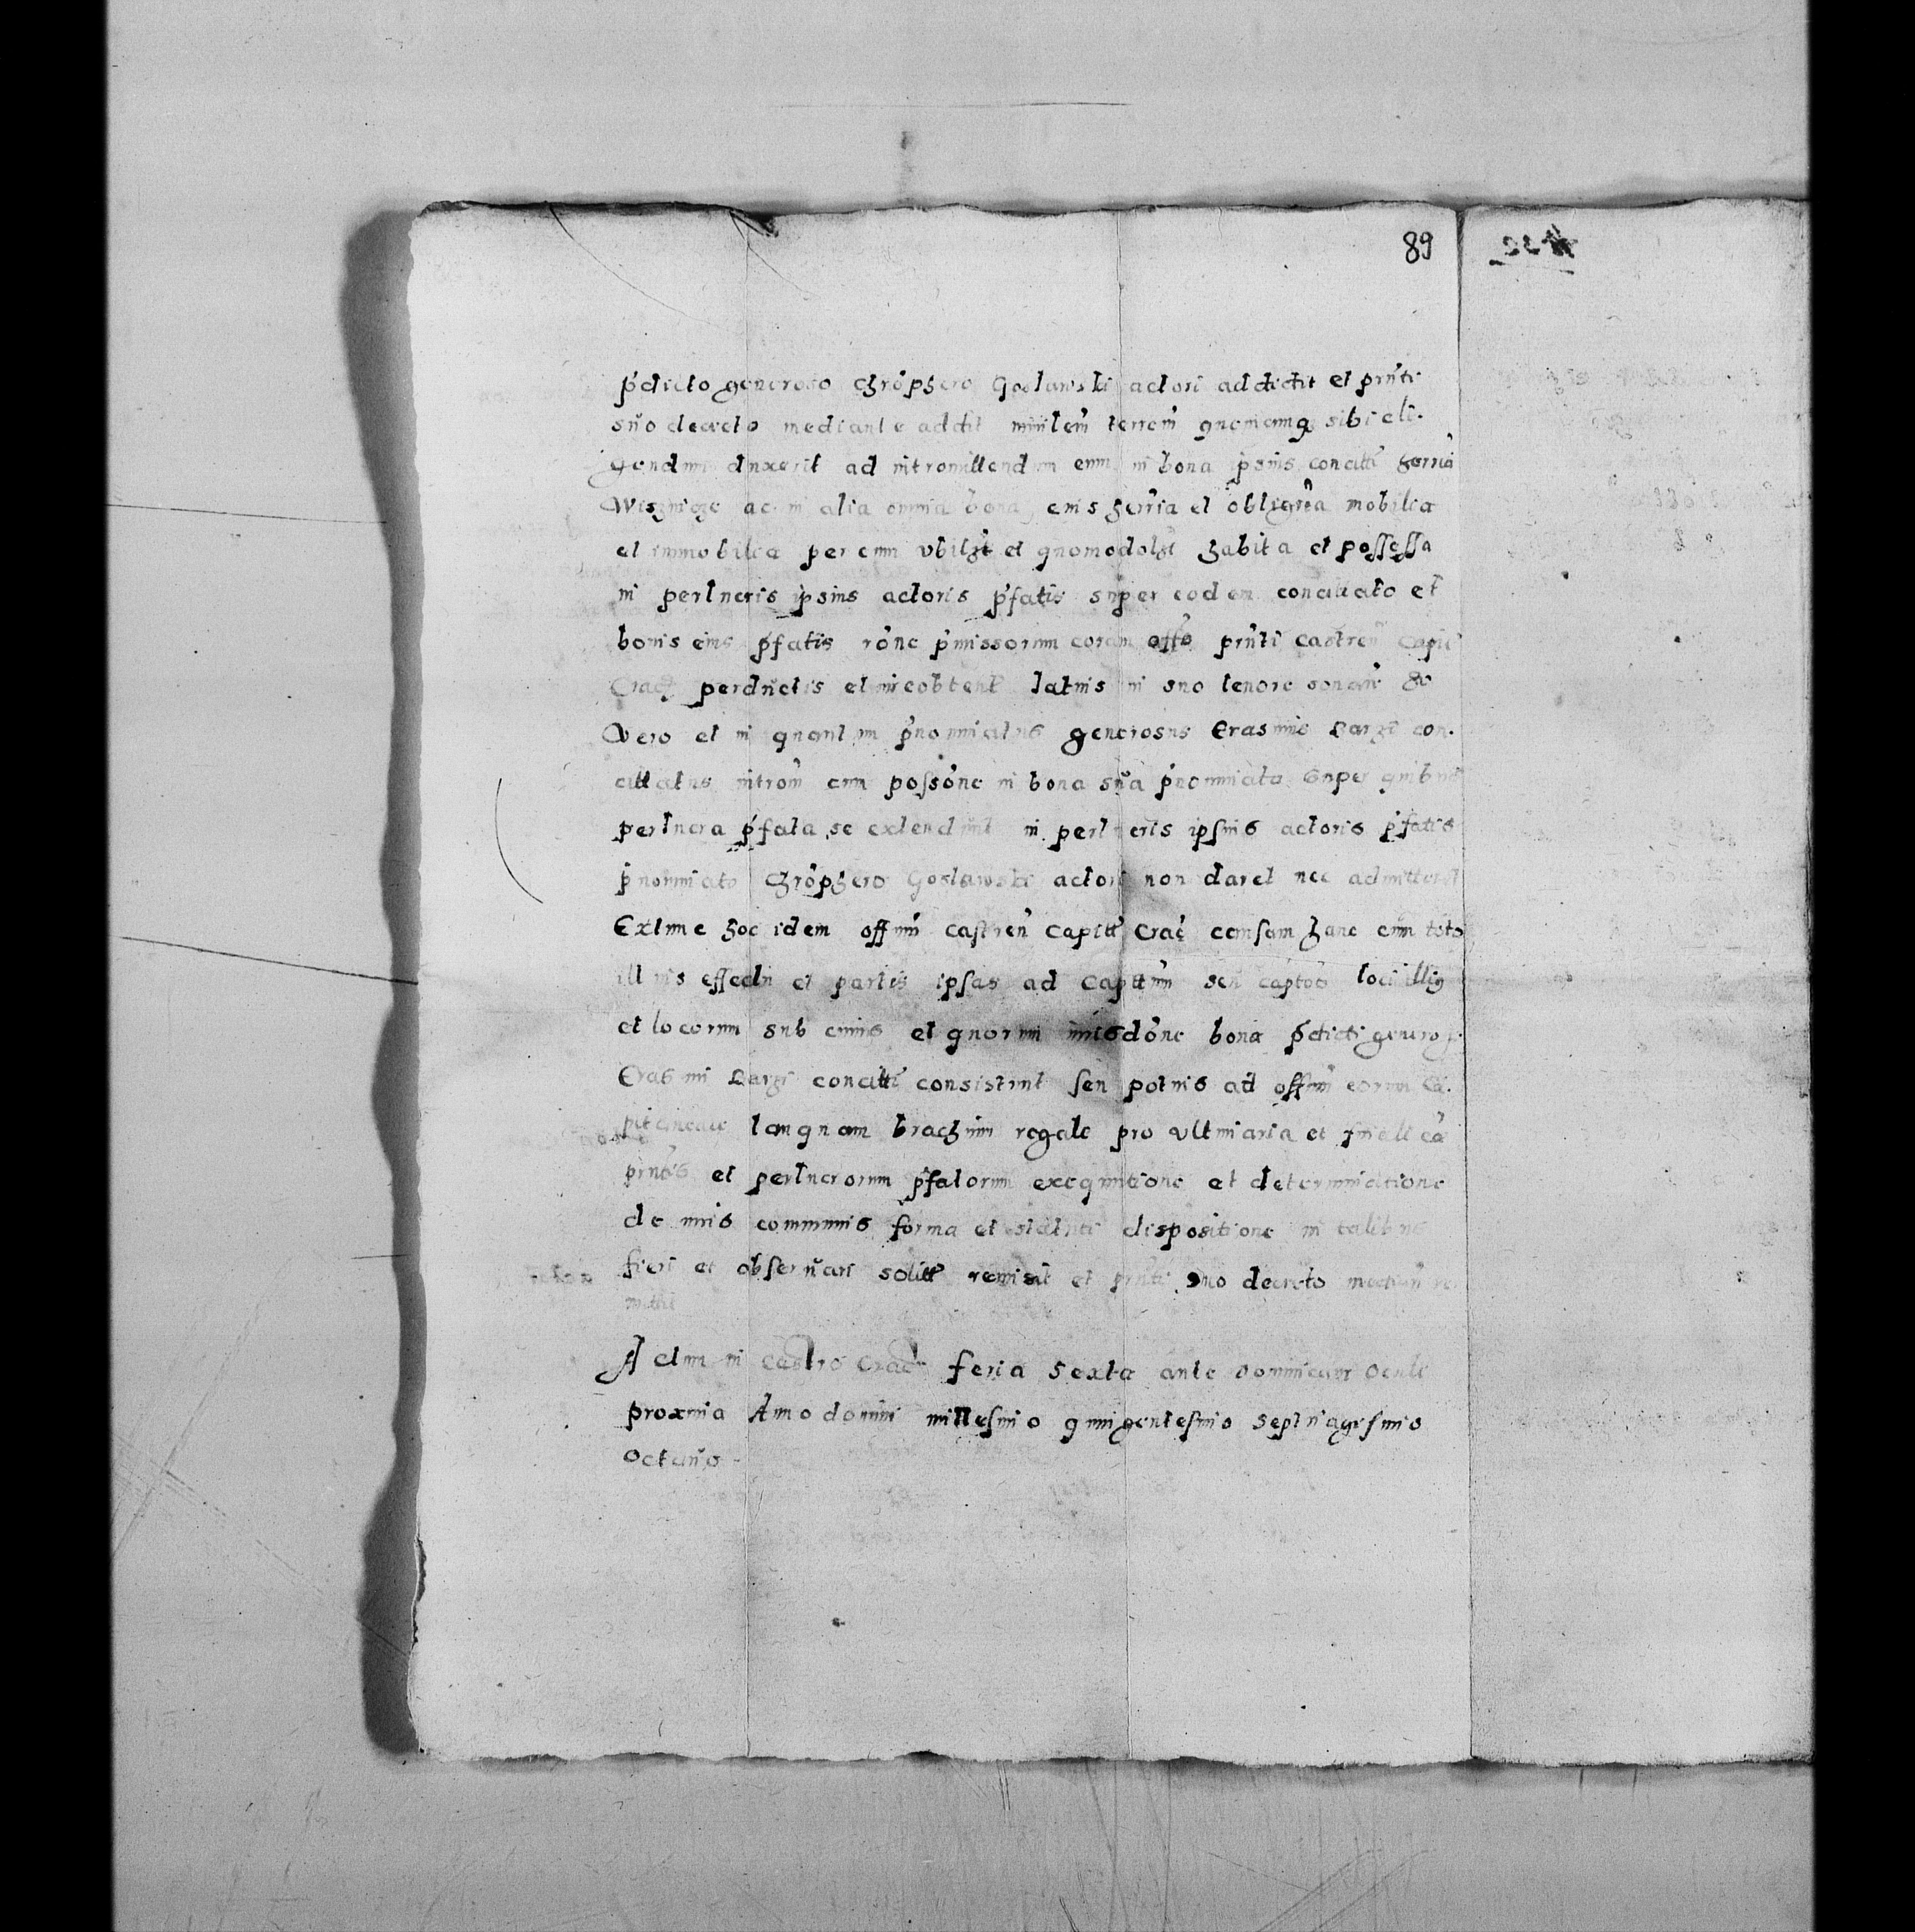 89
p̃dicto generoso Chrõphero Goslawski actori addidit et pñti
sũo decreto mediante addit minlem̃ terrem̃ quemcunq̃ sibi eli-
gendum duxerit ad intromittendum eum in bona ipsius concitti
ac in alia omnia bona eius herr̃ia et obligr̃ia mobilia
et immobilia per eum vbilʒt et quomodolʒt habita et possessa
in perlucris ipsius actoris p̃fatis super eodem concitato et
bonis eius p̃fatis rõne p̃missorum coram offõ pñti castreñ Capit̃
Crac̃ perductis et in eo latius in suo tenore
Vero et in quantum p̃nominatus generosus Erasmus Largi con-
cittatus introm̃ cum possõne in bona sũa p̃nominata super quibus
perlucra p̃fata se extendunt in perlucris ipsius actoris p̃fatis
p̃nominato Chrõphero Goslawski actori non daret nec admitteret
Extunc hoc idem offm̃ castreñ Capitt̃ Crac̃ causam hanc cum toto
illius effectu et partes ipsas ad Capttm̃ seu captos̃ loci illiꝰ
et locorum sub cuius et quorum iurisdõne bona p̃dicti generosi
Erasmi Largi concitt̃ consistunt seu potius ad offm̃ eorum Ca-
pitaneale tanquam brachium regale pro vltimaria et finali cã
pñtis et perlucrorum p̃fatorum exequutione et determinatione
de iuris communis forma et statuti dispositione in talibus
fieri et obseruari solitt̃ remisit et pñti suo decreto mediañ re
mittit
Actum in Castro Crac̃ feria Sexta ante Dominicam Oculi
proxima Anno domini millesimo quingentesimo septuagesimo
Octauo -